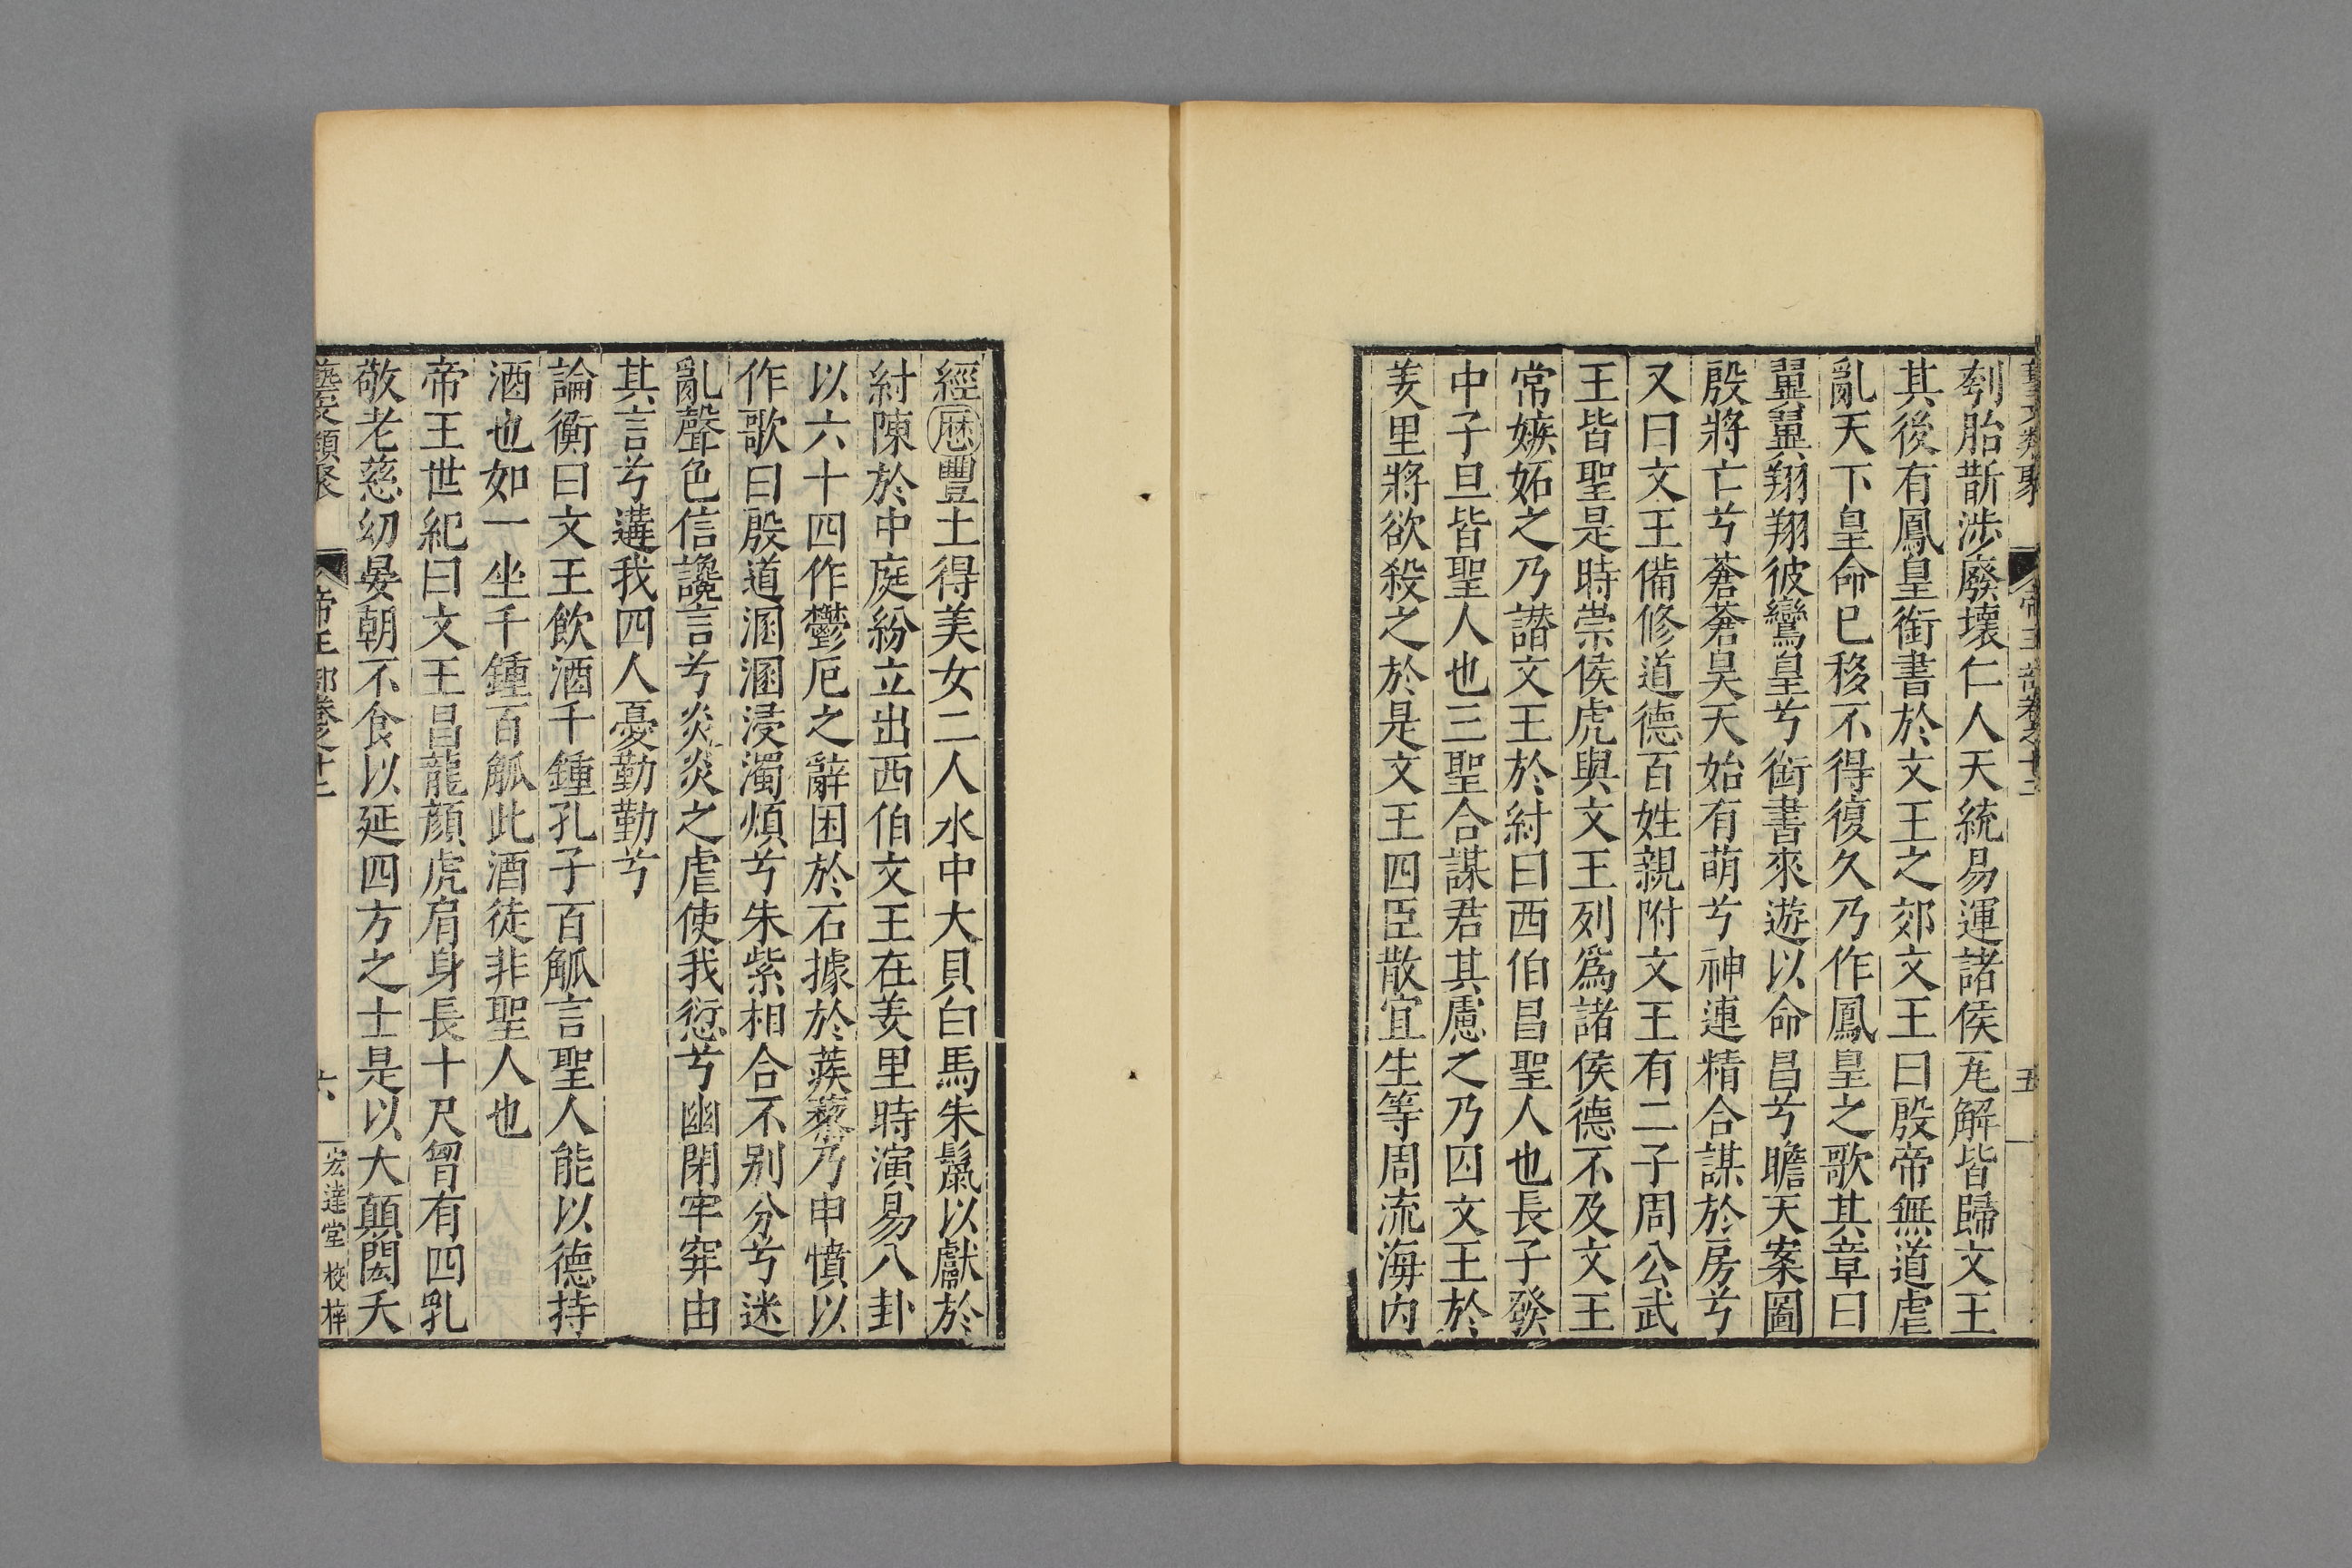 藝文類聚 帝王部卷之十二 五
刳胎斮涉廢壞仁人天統易運諸侯瓦解皆歸文王
其後有鳳皇銜書於文王之郊文王曰殷帝無道虐
亂天下皇命已移不得復久乃作鳳皇之歌其章曰
翼翼翔翔彼鸞皇兮銜書來遊以命昌兮瞻天案圖
殷將亡兮蒼蒼昊天始有萌兮神連精合謀於房兮
又曰文王備修道德百姓親附文王有二子周公武
王皆聖是時崇侯虎與文王列爲諸侯德不及文王
常嫉妬之乃譖文王於紂曰西伯昌聖人也長子發
中子旦皆聖人也三聖合謀君其慮之乃囚文王於
羑里將欲殺之於是文王四臣散宜生等周流海内
經歷豐土得美女二人水中大貝白馬朱鬣以獻於
紂陳於中庭紛立出西伯文王在羑里時演易八卦
以六十四作鬱厄之辭困於石據於蒺蔾乃申憤以
作歌曰殷道溷溷浸濁煩兮朱紫相合不别分兮迷
亂聲色信讒言兮炎炎之虐使我愆兮幽閉牢穽由
其言兮遘我四人憂勤勤兮
論衡曰文王飲酒千鍾孔子百觚言聖人能以德持
酒也如一坐千鍾百觚此酒徒非聖人也
帝王世紀曰文王昌龍顏虎肩身長十尺曾有四乳
敬老慈幼晏朝不食以延四方之士是以大顛閎夭
藝文類聚 帝王部卷之十二 六 宏達堂校梓